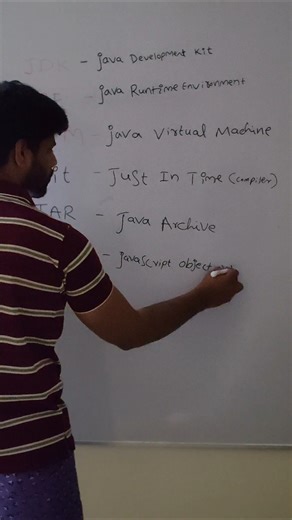 JDK - java Development Kit
java Runtime Environment
- java Virtual Machine
it - Just In Time (compiler)
JAR - Java Archive
- javascript object